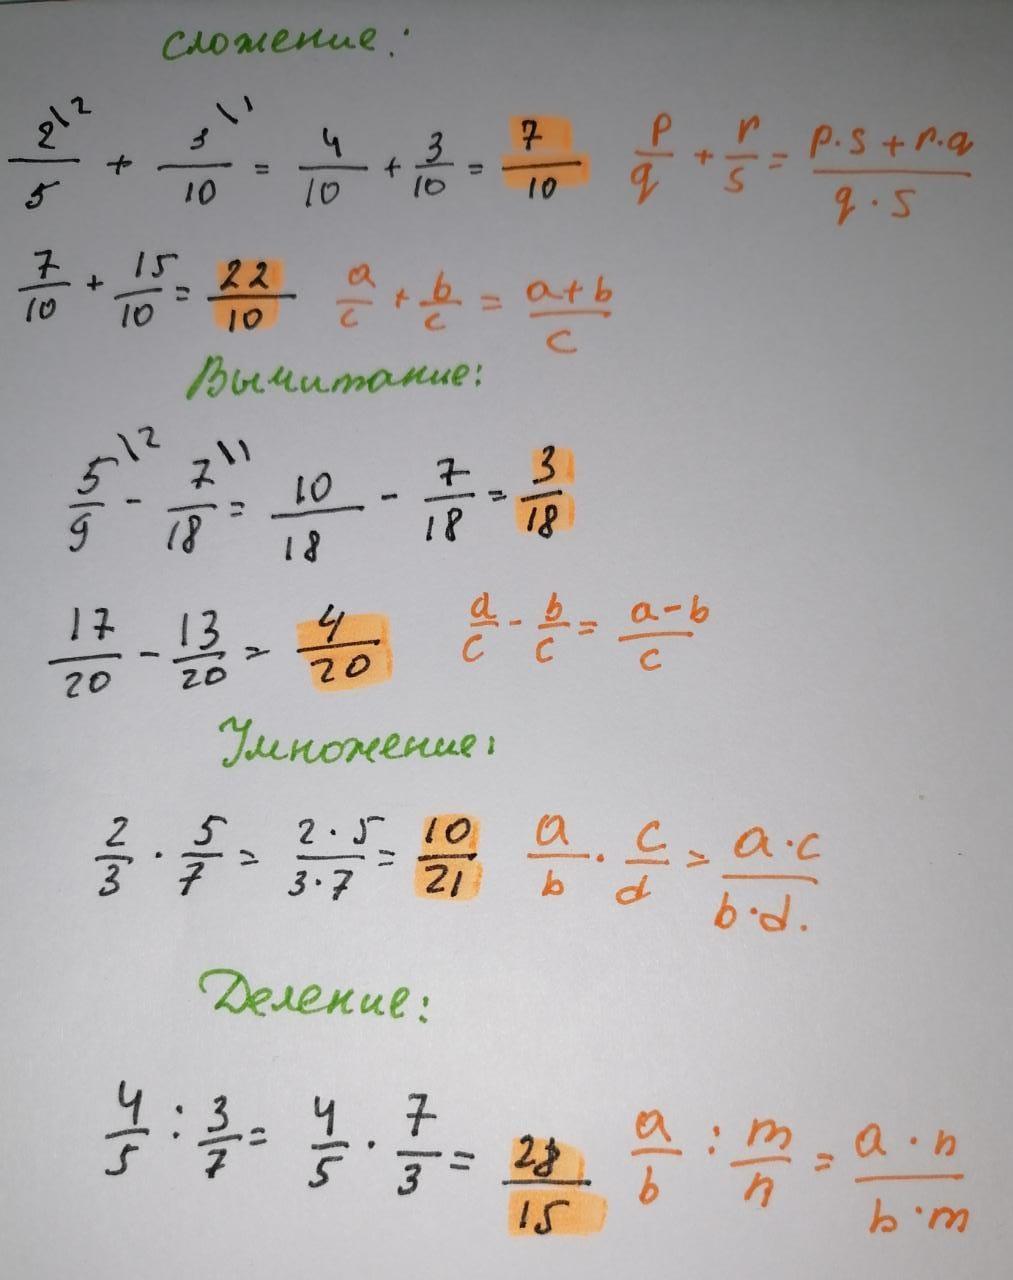 Сложение:
2\2/5 + 3\1/10 = 4/10 + 3/10 = 7/10 p/q + r/s = p·s+r·q/q·s
7/10 + 15/10 = 22/10 a/c + b/c = a+b/c
Вычитание:
5\2/9 - 7\1/18 = 10/18 - 7/18 = 3/18
17/20 - 13/20 = 4/20 a/c - b/c = a-b/c
Умножение:
2/3 · 5/7 = 2·5/3·7 = 10/21 a/b · c/d = a·c/b·d.
Деление:
4/5 : 3/7 = 4/5 · 7/3 = 28/15 a/b : m/n = a·n/b·m